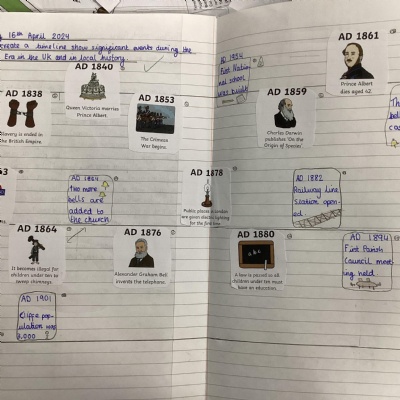 16th April 2024
create a timeline show significant events during the
Era in the UK and in local history.
AD 1838
Slavery is ended in
the British Empire.
AD 1840
Queen Victoria marries
Prince Albert.
AD 1853
The Crimean
War begins.
AD 1854
First Nation
nal school
was built
AD 1859
Charles Darwin
publishes 'On the
Origin of Species'
AD 1861
Prince Albert
dies aged 42
AD 1864
two more
bells are
added to
the church
AD 1878
Public places in London
are given electric lighting
for the first time
AD 1882
Railway line
station open-
ed
AD 1864
It becomes illegal for
children under ten to
sweep chimneys.
AD 1876
Alexander Graham Bell
invents the telephone.
AD 1880
abc
A law is passed so all
children under ten must
have an education.
AD 1894
First Parish
Council meet
ing held
AD 1901
Cliffe pop-
ulation was
3,000